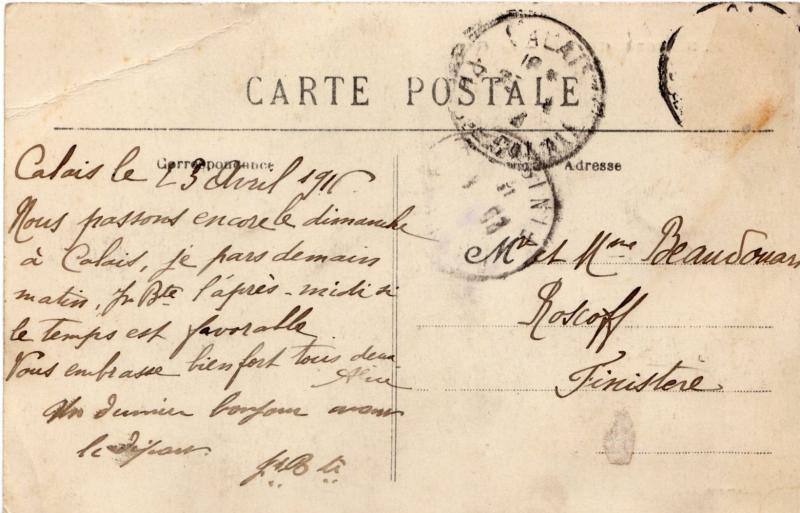 CARTE POSTALE
Correspondance
Adresse
CALAIS
CALAIS
FINIST
Calais le 23 Avril 1916
Nous passons encore le dimanche
à Calais, je pars demain
matin, Jn Bte l'après-midi si
le temps est favorable.
Vous embrasse bien fort tous deux
Un dernier bonjour avant
le départ.
Jn Bte
Mr et Mme Beaudouart
Roscoff
Finistère